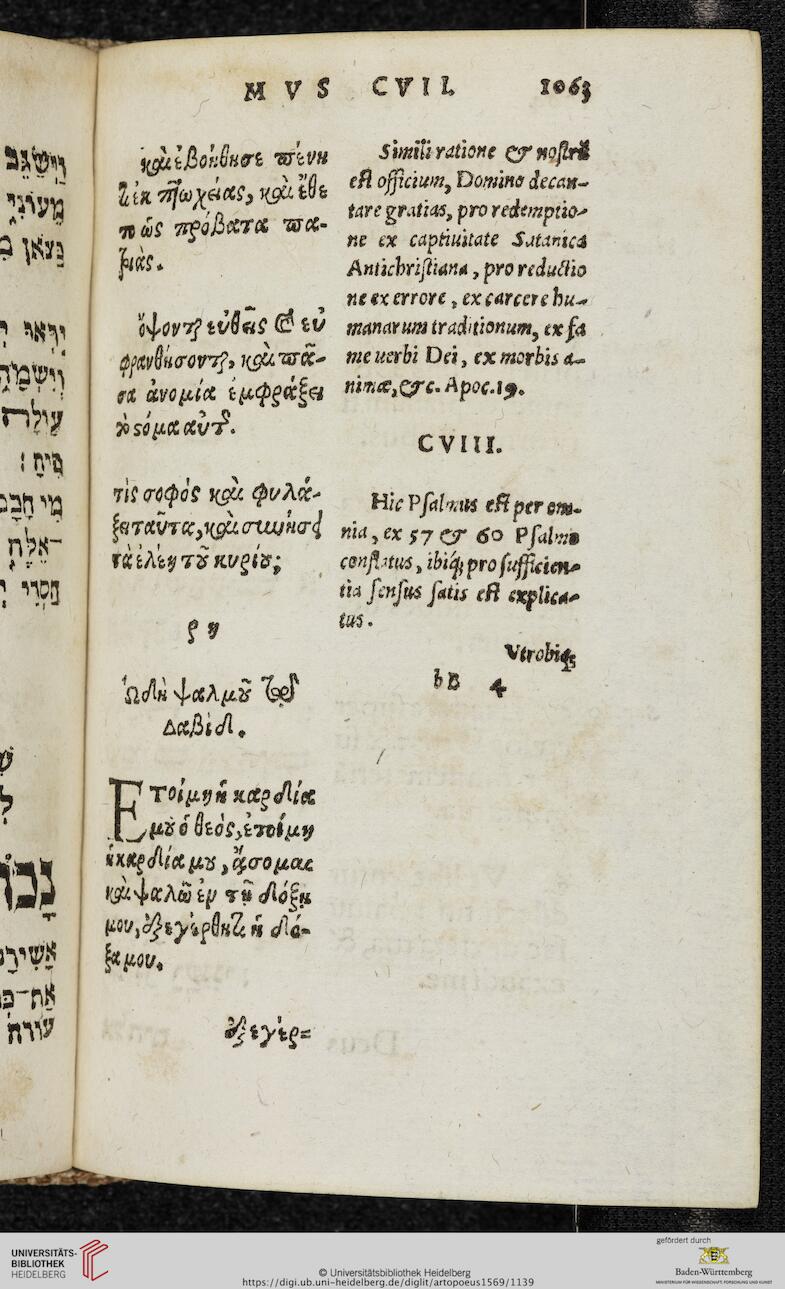 MVS CVII. 1063
καὶ ἐβοήθησε πένη
τι ἐκ πτωχείας, καὶ ἔθε
το ὡς πρόβατα πα-
τριάς.
ὄψονται εὐθεῖς καὶ εὐ
φρανθήσονται, καὶ πᾶ-
σα ἀνομία ἐμφράξει
τὸ στόμα αὐτῆς.
τίς σοφὸς καὶ φυλά-
ξει ταῦτα, καὶ συνήσει
τὰ ἐλέη τοῦ κυρίου;
ρη
Ὠδὴ ψαλμοῦ τῷ
Δαβίδ.
Ετοίμη ἡ καρδία
μου ὁ θεὸς, ἑτοίμη
ἡ καρδία μου, ᾄσομαι
καὶ ψαλῶ ἐν τῇ δόξῃ
μου, ἐξεγέρθητι ἡ δό-
ξα μου.
ἐξεγέρ=
Simili ratione & nostrū
est officium, Domino decan-
tare gratias, pro redemptio-
ne ex captiuitate Satanica
Antichristiana, pro reductio
ne ex errore, ex carcere hu-
manarum traditionum, ex fa
me uerbi Dei, ex morbis a-
nimæ, &c. Apoc. 19.
CVIII.
Hic Psalmus est per om-
nia, ex 57 & 60 Psalmo
conflatus, ibiq́; pro sufficien-
tia sensus satis est explica-
tus.
Vtrobiq;
bB 4
וַיְשַׂגֵּב
מֵעוֹנִי
כַּצֹּאן מִ
יִרְאוּ יְ
וְיִשְׂמָחוּ
עַוְלָה
פִּיהָ׃
מִי חָכָם
אֵלֶּה
חַסְדֵי יְ
נָכוֹן
אָשִׁירָה
אַף־כְּ
עוּרָה
UNIVERSITÄTS-
BIBLIOTHEK
HEIDELBERG
© Universitätsbibliothek Heidelberg
https://digi.ub.uni-heidelberg.de/diglit/artopoeus1569/1139
gefördert durch
Baden-Württemberg
MINISTERIUM FÜR WISSENSCHAFT, FORSCHUNG UND KUNST